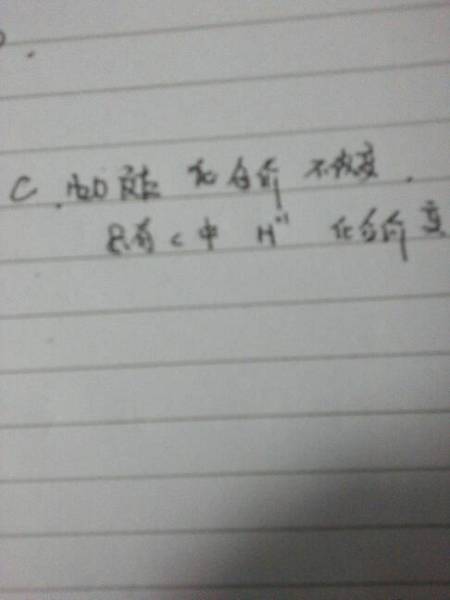 C. ABD 反应 化合价 不改变.
只有 C 中 H⁺¹ 化合价 变